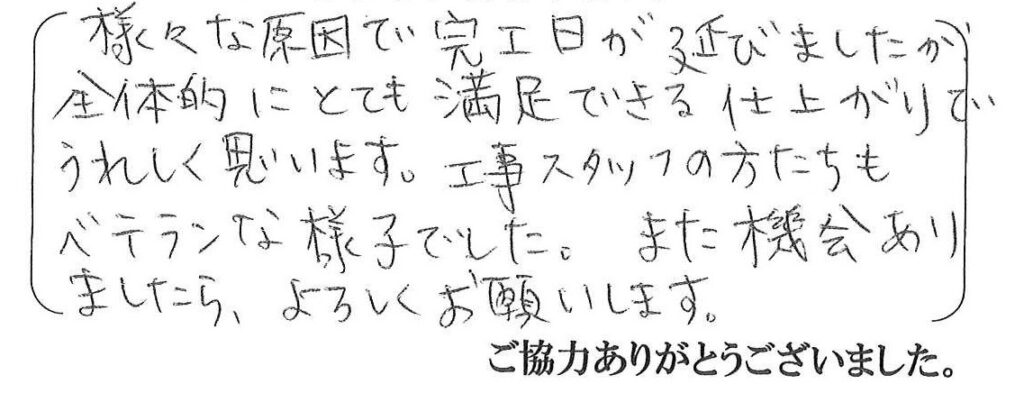 様々な原因で完工日が延びましたが
全体的にとても満足できる仕上がりで
うれしく思います。工事スタッフの方たちも
ベテランな様子でした。また機会あり
ましたら、よろしくお願いします。
ご協力ありがとうございました。